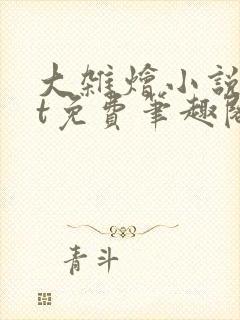 大雜燴小說
t免費筆趣閣
青斗